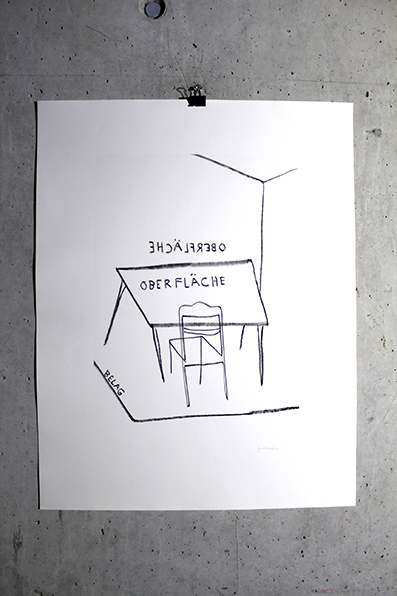 OBERFLÄCHE
OBERFLÄCHE
BELAG